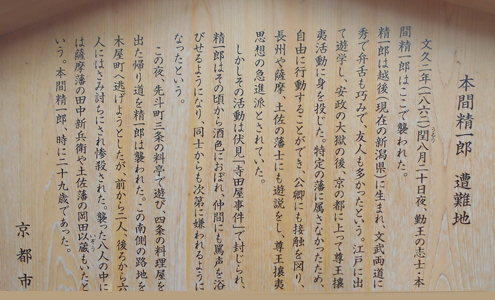 本間精一郎 遭難地
文久二年(一八六二)閏八月二十日夜、勤王の志士・本
間精一郎はここで襲われた。
精一郎は越後(現在の新潟県)に生まれ、文武両道に
秀で弁舌も巧みで、友人も多かったという。江戸に出
て遊学し、安政の大獄の後、京の都に上って尊王攘
夷活動に身を投じた。特定の藩に属さなかったため、
自由に行動することができ、公卿にも接触を図り、
長州や薩摩、土佐の藩士にも遊説をし、尊王攘夷
思想の急進派とされていた。
しかしその活動は伏見「寺田屋事件」で封じられ、
精一郎はその頃から酒色におぼれ、仲間にも罵声を浴
びせるようになり、同士からも次第に嫌われるように
なったという。
この夜、先斗町三条の料亭で遊び、四条の料理屋を
出た帰り道を精一郎は襲われた。この南側の路地を
木屋町へ逃げようとしたが、前から二人、後ろから六
人にはさみ討ちにされ惨殺された。襲った八人の中に
は薩摩藩の田中新兵衛や土佐藩の岡田以蔵もいたと
いう。本間精一郎、時に二十九歳であった。
京都市